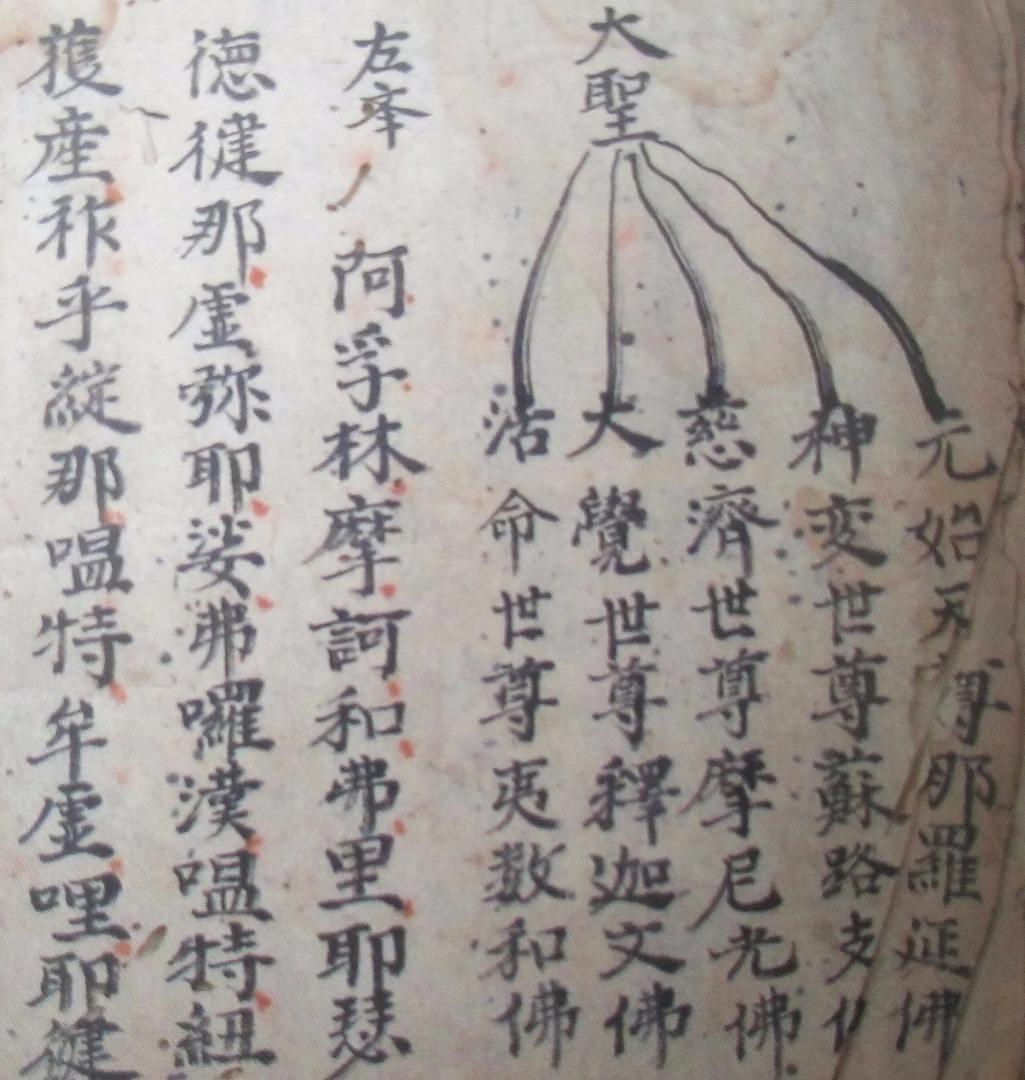 大聖
元始天尊那羅延佛
神変世尊蘇路支佛
慈濟世尊摩尼光佛
大覺世尊釋迦文佛
活命世尊夷数和佛
左夅
阿孚林摩訶和弗里耶瑟
德健那虛弥耶娑弗囉漢嗢特紐
䕶産祚乎綻那嗢特牟虛哩耶健